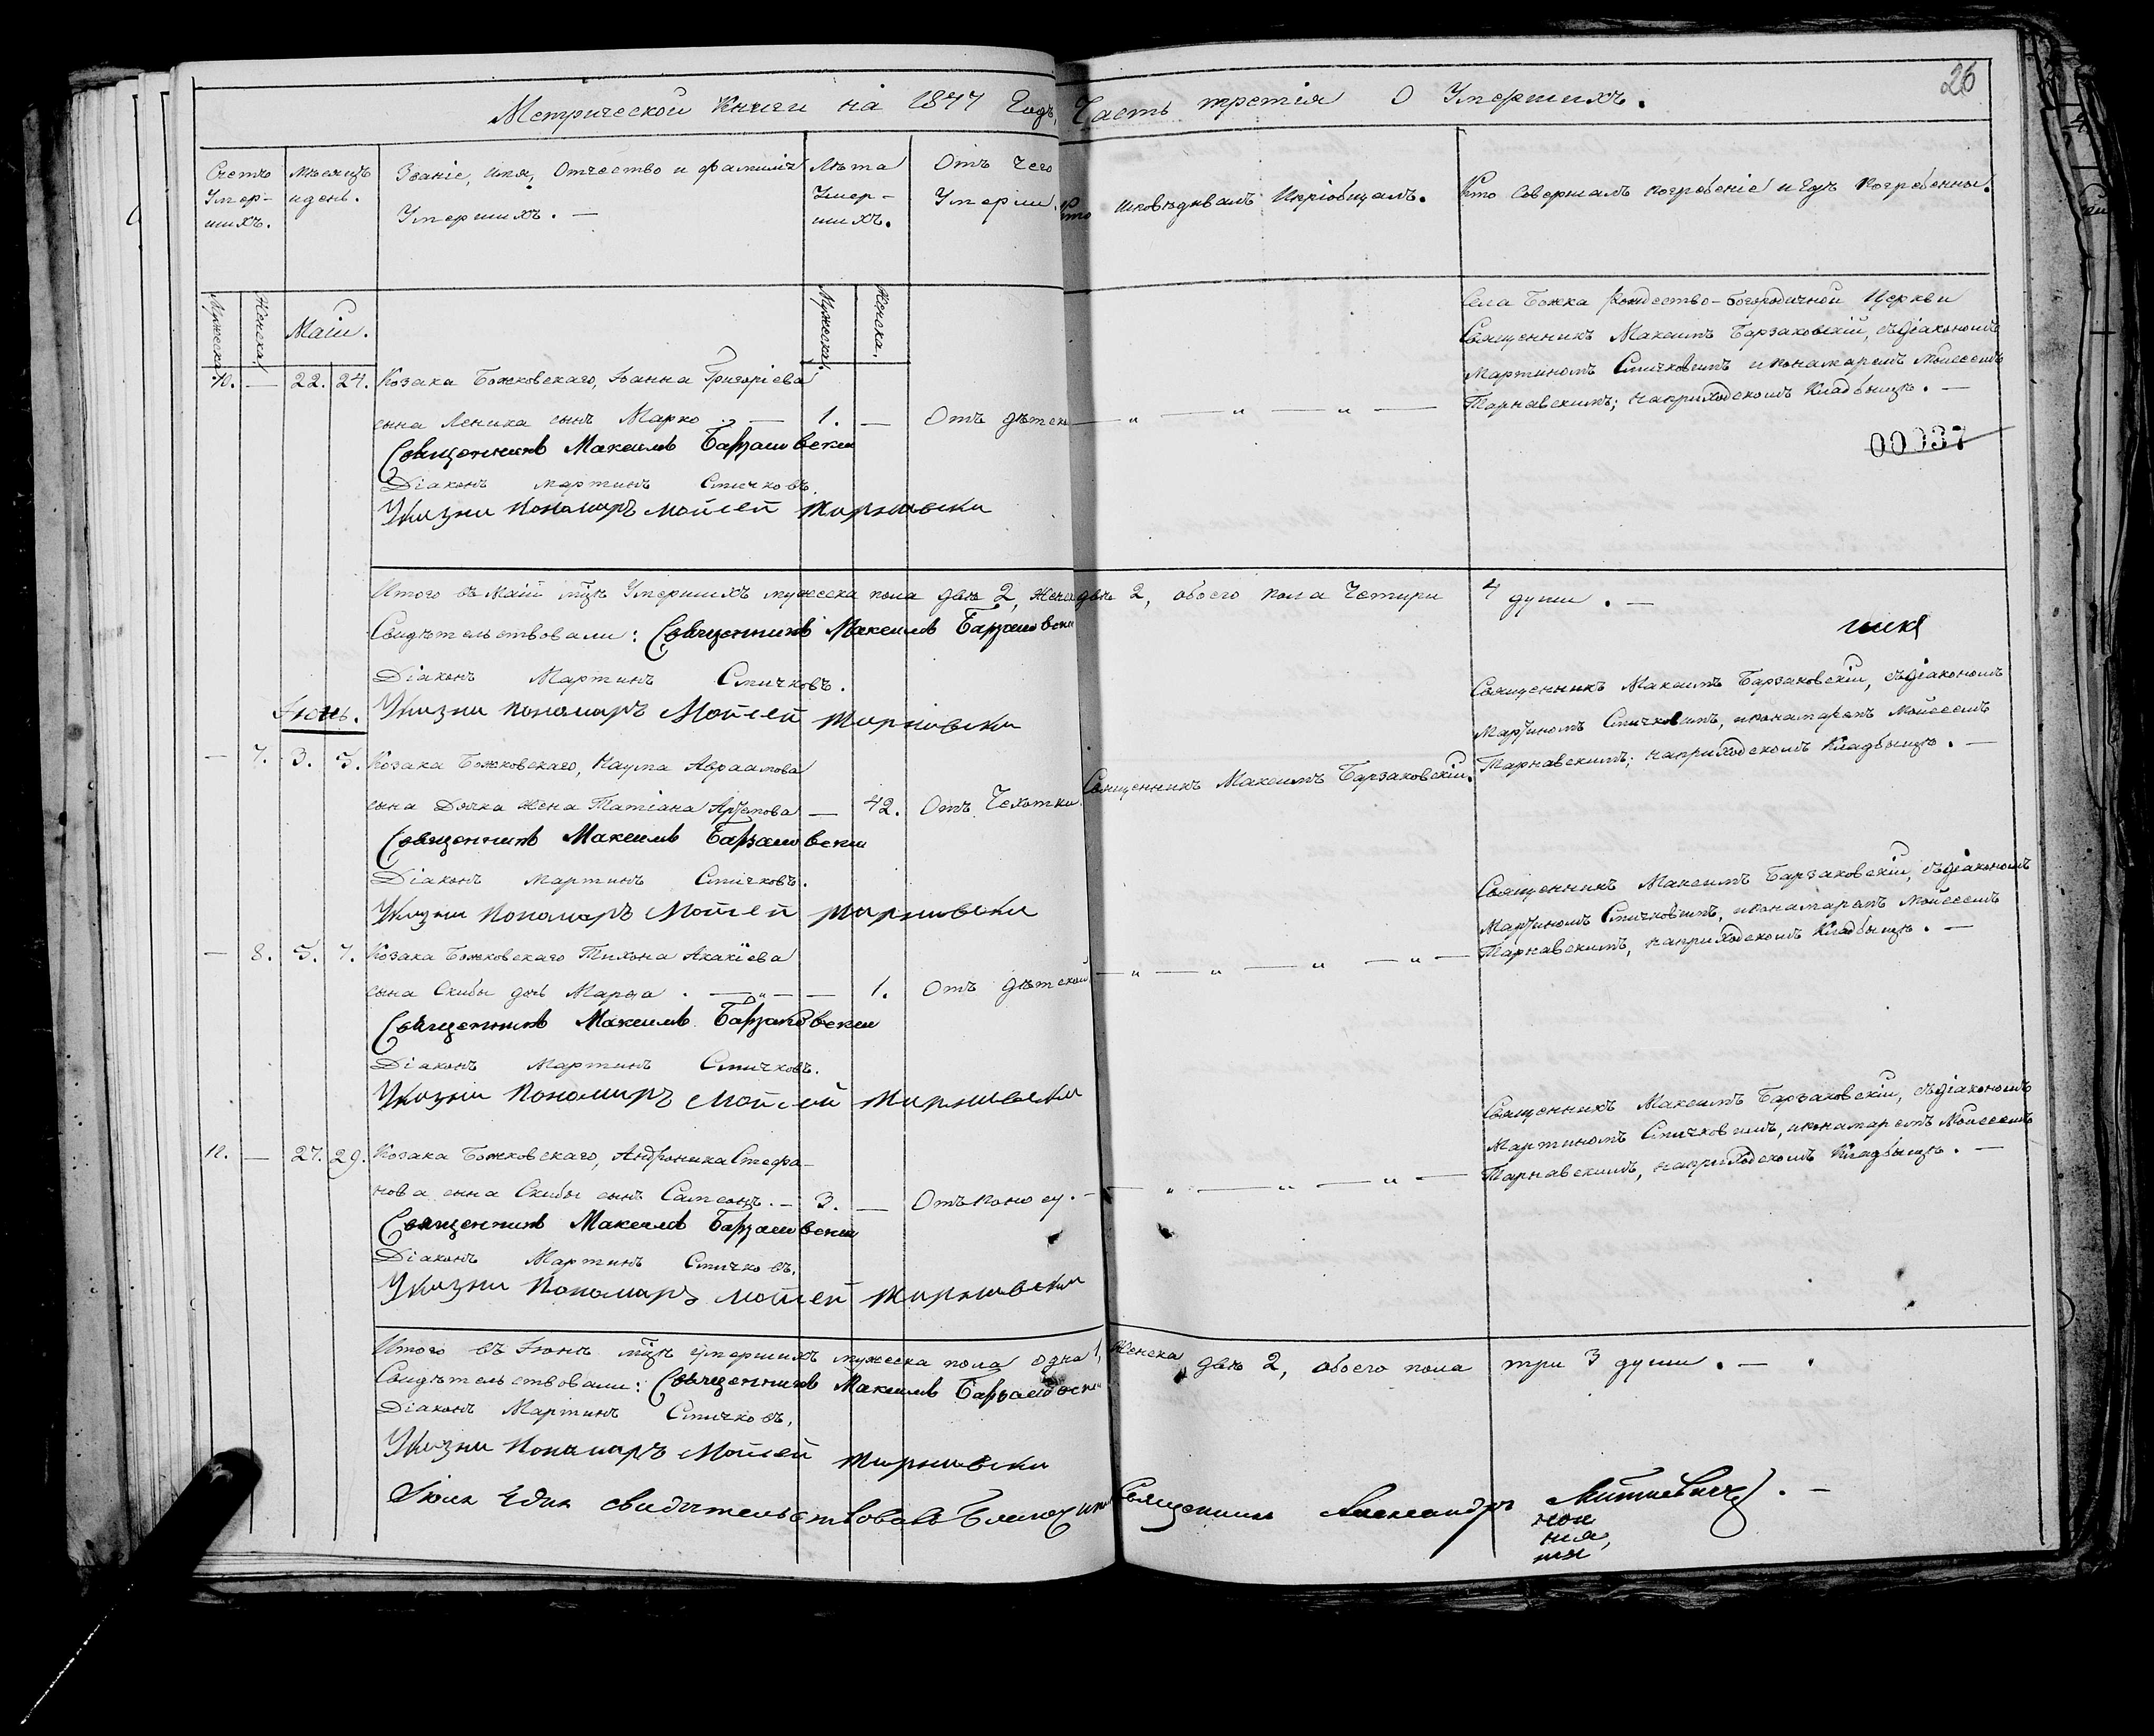 26
Метрической Книги на 1847 Годъ, Часть третія О Умершихъ.
Счетъ Умер- шихъ.
Мѣсяцъ и день.
Званіе, имя, Отчество и фамилія Умершихъ. —
Лѣта Умер- шихъ.
Отъ чего Умерли.
Кто исповѣдывалъ и пріобщалъ.
Кто Совершалъ погребеніе и гдѣ погребены.
Мужеска.
Женска.
Маій.
Мужеска.
Женска.
10. — 22. 24. Козака Божковскаго, Іоанна Григоріева
сына Леника сынъ Марко . — 1. — Отъ дѣтск — „ — „ — „ —
Села Божка Рождество-Богородичной Церкви
Священникъ Максимъ Барзаковскій, съ Діакономъ
Мартиномъ Смичковымъ и понамаремъ Моисеемъ
Тарнавскимъ; на приходскомъ Кладбищѣ. —
00037
Священникъ Максимъ Барзаковски
Діаконъ Мартинъ Смичковъ.
Указни Пономаръ Мойсей Тарнавски
Итого въ Маій мцѣ Умершихъ мужеска пола двѣ 2, женска двѣ 2, обоего пола Четири 4 души. —
Свидѣтельствовали: Священникъ Максимъ Барзаковски
Діаконъ Мартинъ Смичковъ.
Указни Пономаръ Мойсей Тарнавски
Іюнь.
— 7. 3. 5. Козака Божковскаго, Наума Авраамова
сына Дячка жена Татіана Артемова — 42. Отъ Чехотки. Священникъ Максимъ Барзаковскій.
Священникъ Максимъ Барзаковскій, съ Діакономъ
Мартиномъ Смичковымъ, и понамаремъ Моисеемъ
Тарнавскимъ; на приходскомъ Кладбищѣ. —
Священникъ Максимъ Барзаковски
Діаконъ Мартинъ Смичковъ.
Указни Пономаръ Мойсей Тарнавски
— 8. 5. 7. Козака Божковскаго Тихона Акакіева
сына Скибы дочь Марѳа . — „ — — 1. Отъ дѣтской — „ — „ — „ — „ —
Священникъ Максимъ Барзаковскій, съ Діакономъ
Мартиномъ Смичковымъ, и понамаремъ Моисеемъ
Тарнавскимъ, на приходскомъ Кладбищѣ. —
Священникъ Максимъ Барзаковски
Діаконъ Мартинъ Смичковъ.
Указни Пономаръ Мойсей Тарнавски
11. — 27. 29. Козака Божковскаго, Андроника Стефа-
нова сына Скибы сынъ Сампсонъ. — 3. — Отъ поносу. — „ — „ — „ — „ —
Священникъ Максимъ Барзаковскій, съ Діакономъ
Мартиномъ Смичковымъ, и понамаремъ Моисеемъ
Тарнавскимъ, на приходскомъ Кладбищѣ. —
Священникъ Максимъ Барзаковски
Діаконъ Мартинъ Смичковъ.
Указни Пономаръ Мойсей Тарнавски
Итого въ Іюнѣ мцѣ умершихъ мужеска пола одна 1, женска двѣ 2, обоего пола три 3 души. —
Свидѣтельствовали: Священникъ Максимъ Барзаковски
Діаконъ Мартинъ Смичковъ.
Указни Пономаръ Мойсей Тарнавски
свидѣтельствовалъ Благочин Священникъ Александръ